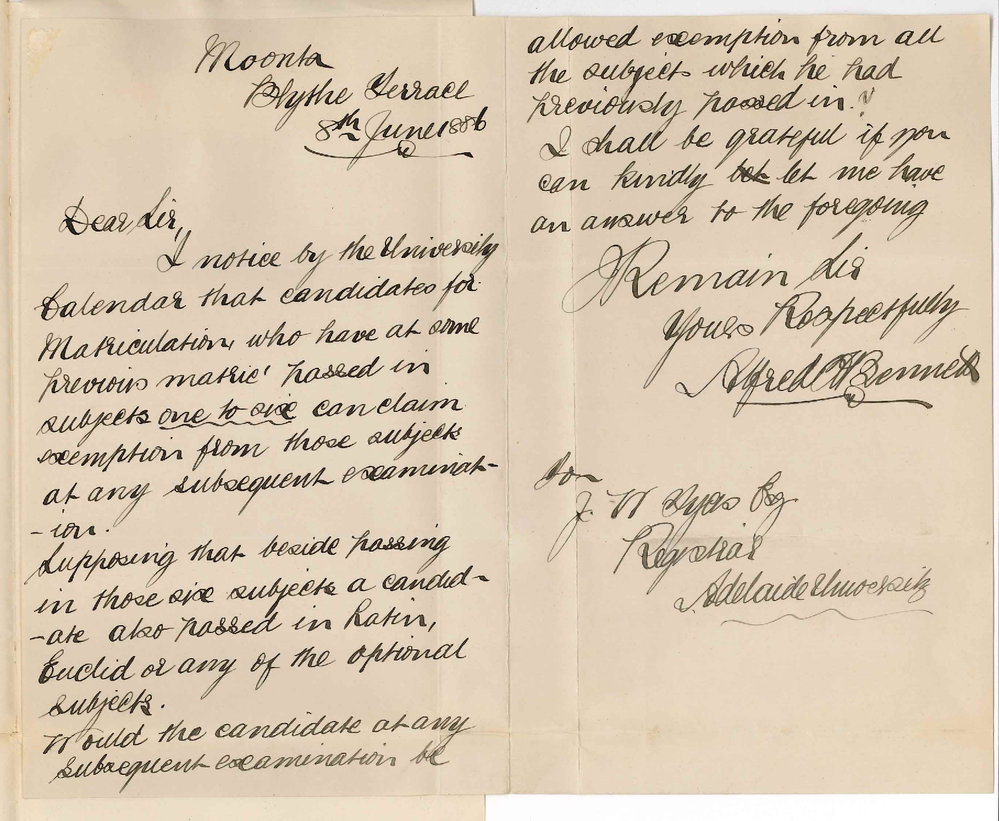 Moonta
Blythe Terrace
8th June 1886
Dear Sir,
I notice by the University
Calendar that candidates for
Matriculation, who have at some
previous matric' passed in
subjects one to six can claim
exemption from those subjects
at any subsequent examinat-
-ion.
Supposing that beside passing
in those six subjects a candid-
-ate also passed in Latin,
Euclid or any of the optional
subjects.
Would the candidate at any
subsequent examination be
allowed exemption from all
the subjects which he had
previously passed in.
I shall be grateful if you
can kindly let me have
an answer to the foregoing
I Remain Sir
Yours Respectfully
Alfred H Bennett
To
J. W Tyas Esq
Registrar
Adelaide University